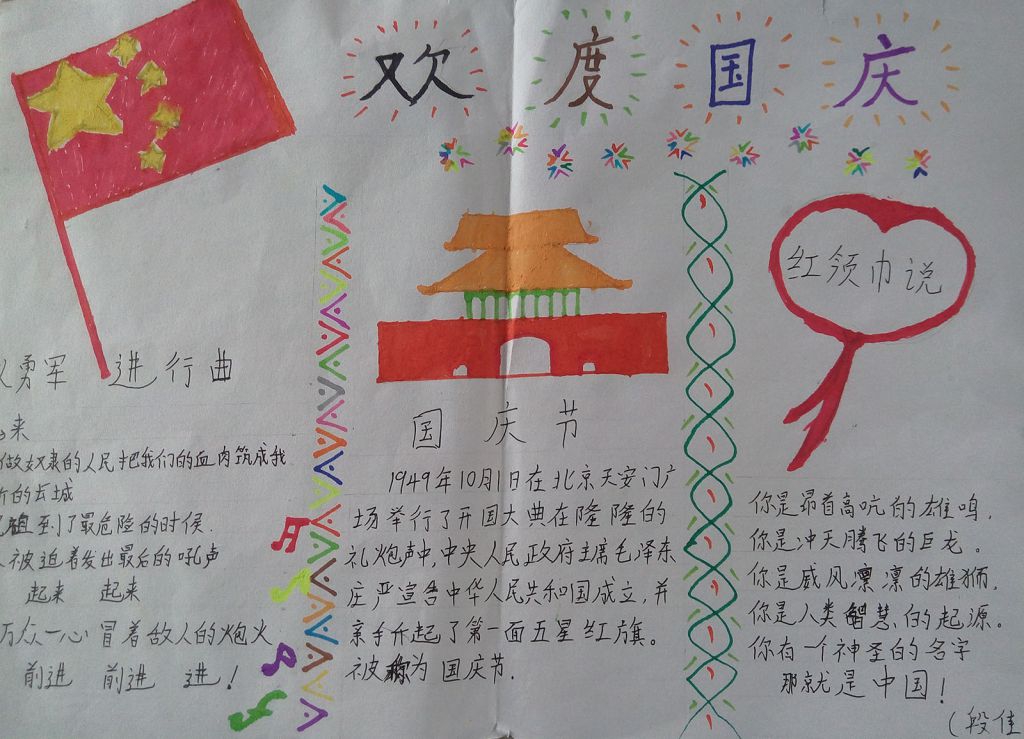 欢度国庆
勇军 进行曲
来
做奴隶的人民把我们的血肉筑成我
的长城
到了最危险的时候.
被迫着发出最后的吼声
起来 起来
万众一心冒着敌人的炮火
前进 前进 进!
国庆节
1949年10月1日在北京天安门广
场举行了开国大典在隆隆的
礼炮声中,中央人民政府主席毛泽东
庄严宣告中华人民共和国成立,并
亲手升起了第一面五星红旗。
被称为国庆节.
红领巾说
你是昂首高吭的雄鸣,
你是冲天腾飞的巨龙。
你是威风凛凛的雄狮,
你是人类智慧的起源。
你有一个神圣的名字
那就是中国!
(段佳